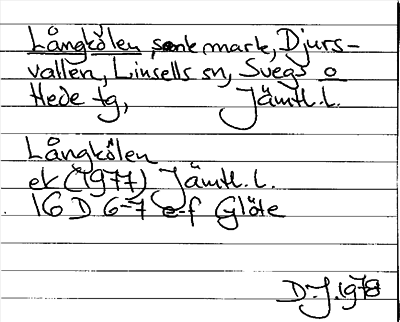 Långkölen, sank mark, Djurs-
vallen, Linsells sn, Svegs o
Hede tg, Jämtl. l.
Långkölen
ek (1977) Jämtl. l.
16 D 6-7 e-f Glöte
D-J. 1978